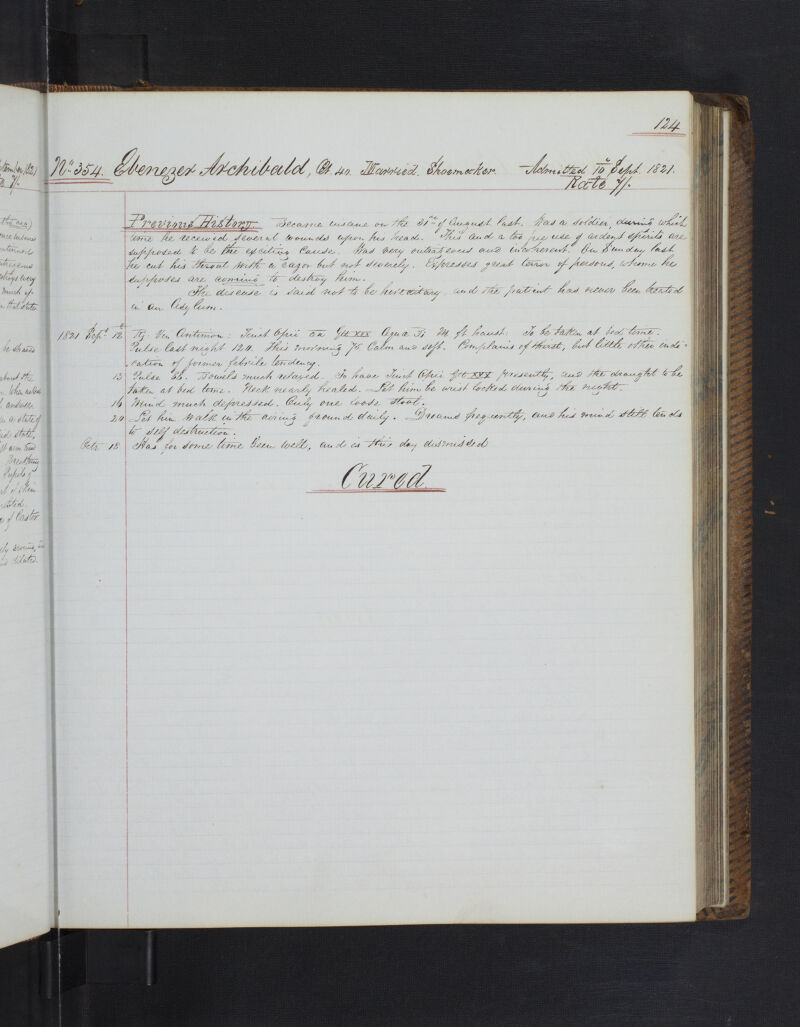 124
No 354. Ebenezer Archibald, Æt 40. Married. Shoemaker. Admitted 10th Sept. 1821.
Rate 7/.
Previous History. Became insane on the of August last. Was a soldier, during which
time he received several wounds upon his head. This and a too free use of ardent spirits are
supposed to be the exciting cause. Was very outrageous and incoherent. On Sunday last
he cut his throat with a razor but not severely. Expresses great terror of persons, whome he
supposes are coming to destroy him.
The disease is said not to be hereditary, and the patient has never been treated
in an Asylum.
1821 Sept 12th Rx. Vin Antimon: Tinct Opii aa Gtt xxx Aqua ft haust: To be taken at bed time.
Pulse last night 120. This morning 78 Calm and soft. Complains of thirst, but little other indi-
cation of former febrile tendency.
13 Pulse Bowels much relaxed. To have Tinct Opii Gtt xxx presently, and the draught to be
taken at bed time. Neck nearly healed. Let him be wrist locked during the night.
16 Mind much depressed. Only one loose stool.
20 Let him walk in the airing ground daily. Dreams frequently, and his mind still tends
to self destruction.
Octr 18 Has for some time been well, and is this day dismissed
Cured.